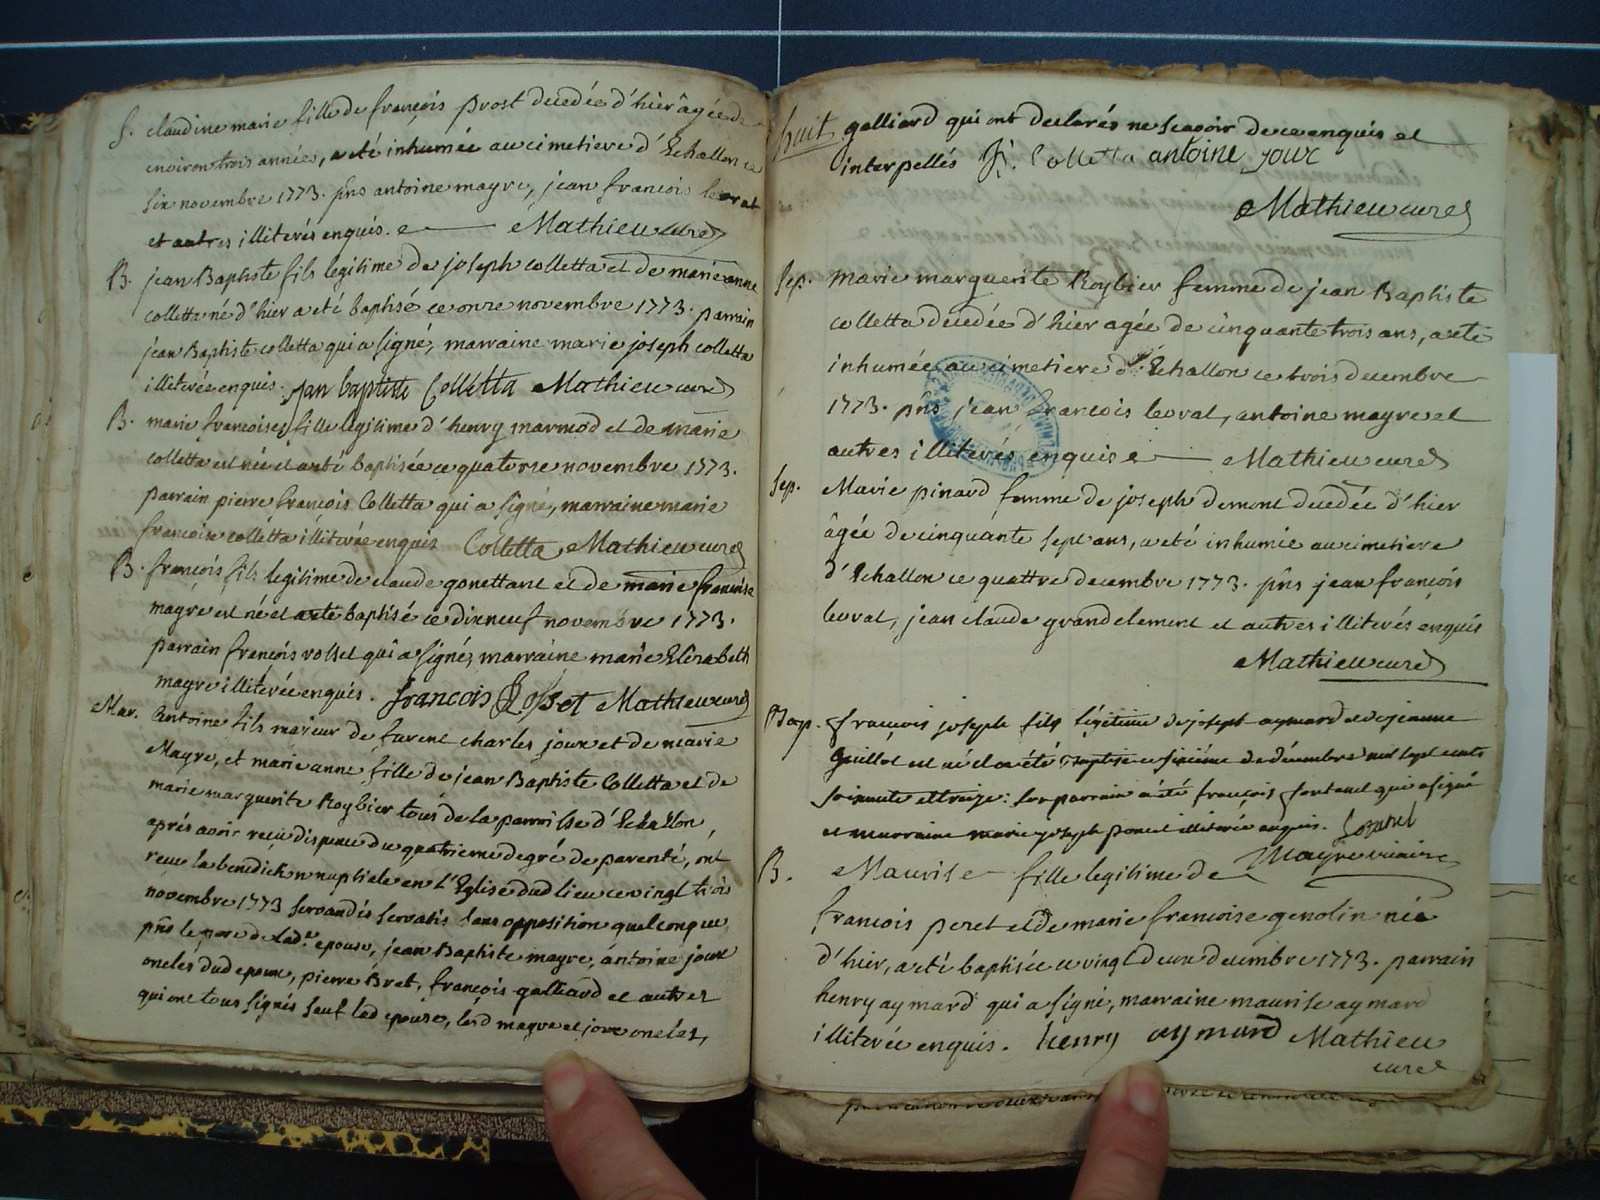 S. claudine marie fille de françois prost decedée d'hier âgée de
environ trois années, a eté inhumée au cimetiere d'Echallon ce
six novembre 1773. pñs antoine mayre, jean francois levrat
et autres illiterés enquis. Mathieu curé
B. jean Baptiste fils legitime de joseph colletta et de marie anne
colletta né d'hier a eté baptisé ce onze novembre 1773. parrain
jean Baptiste colletta qui a signé, marraine marie joseph colletta
illiterée enquis. jan baptiste Colletta Mathieu curé
B. marie francoise fille legitime d'henry marmod et de marie
colletta est née et a eté baptisée ce quatorse novembre 1773.
parrain pierre francois Colletta qui a signé, marraine marie
francoise colletta illiterée enquis Colletta Mathieu curé
B. françois fils legitime de claude gonettant et de marie francoise
mayre est né et a eté baptisé ce dixneuf novembre 1773.
parrain françois rosset qui a signé, marraine marie Elizabeth
mayre illiterée enquis. francois Rosset Mathieu curé
Mar. Antoine fils majeur de furent charles joux et de marie
Mayre, et marie anne fille de jean Baptiste Colletta et de
marie marguerite Roybier tous de la parroisse d'Echallon,
aprés avoir reçu dispense du quatrieme degré de parenté, ont
reçu la benediction nuptiale en l'Eglise dud lieu ce vingt trois
novembre 1773 servandis servatis sans opposition quelconque,
pñs le pere de lade. epouse, jean Baptiste mayre, antoine joux
oncles dud epoux, pierre Bret, françois galliard et autres
qui ont tous signés sauf lad epouse, lesd mayre et joux oncles,
huit galliard qui ont declarés ne scavoir de ce enquis et
interpellés J. B. Colletta antoine joux
Mathieu curé
Sep. Marie marguerite Roybier femme de jean Baptiste
colletta decedée d'hier agée de cinquante trois ans, a eté
inhumée au cimetiere d'Echallon ce trois decembre
1773. pñs jean francois levrat, antoine mayre et
autres illiterés enquis Mathieu curé
Sep. Marie pinard femme de joseph demont decedée d'hier
âgée de cinquante sept ans, a eté inhumée au cimetiere
d'Echallon ce quattre decembre 1773. pñs jean françois
levrat, jean claude grandclement et autres illiterés enquis
Mathieu curé
Bap. françois joseph fils légitime de joseph aymard et de jeanne
Guillot est né et a été baptisé ce sixiéme de décembre mil sept cents
soixante et treize: son parrain a été françois fontanel qui a signé
et marraine marie joseph poncet illiterée enquis.
Mayre vicaire
B. Maurise fille legitime de
francois peret et de marie francoise genolin née
d'hier, a eté baptisée ce vingt deux decembre 1773. parrain
henry aymard qui a signé, marraine maurise aymard
illiterée enquis. henry aymard Mathieu
curé